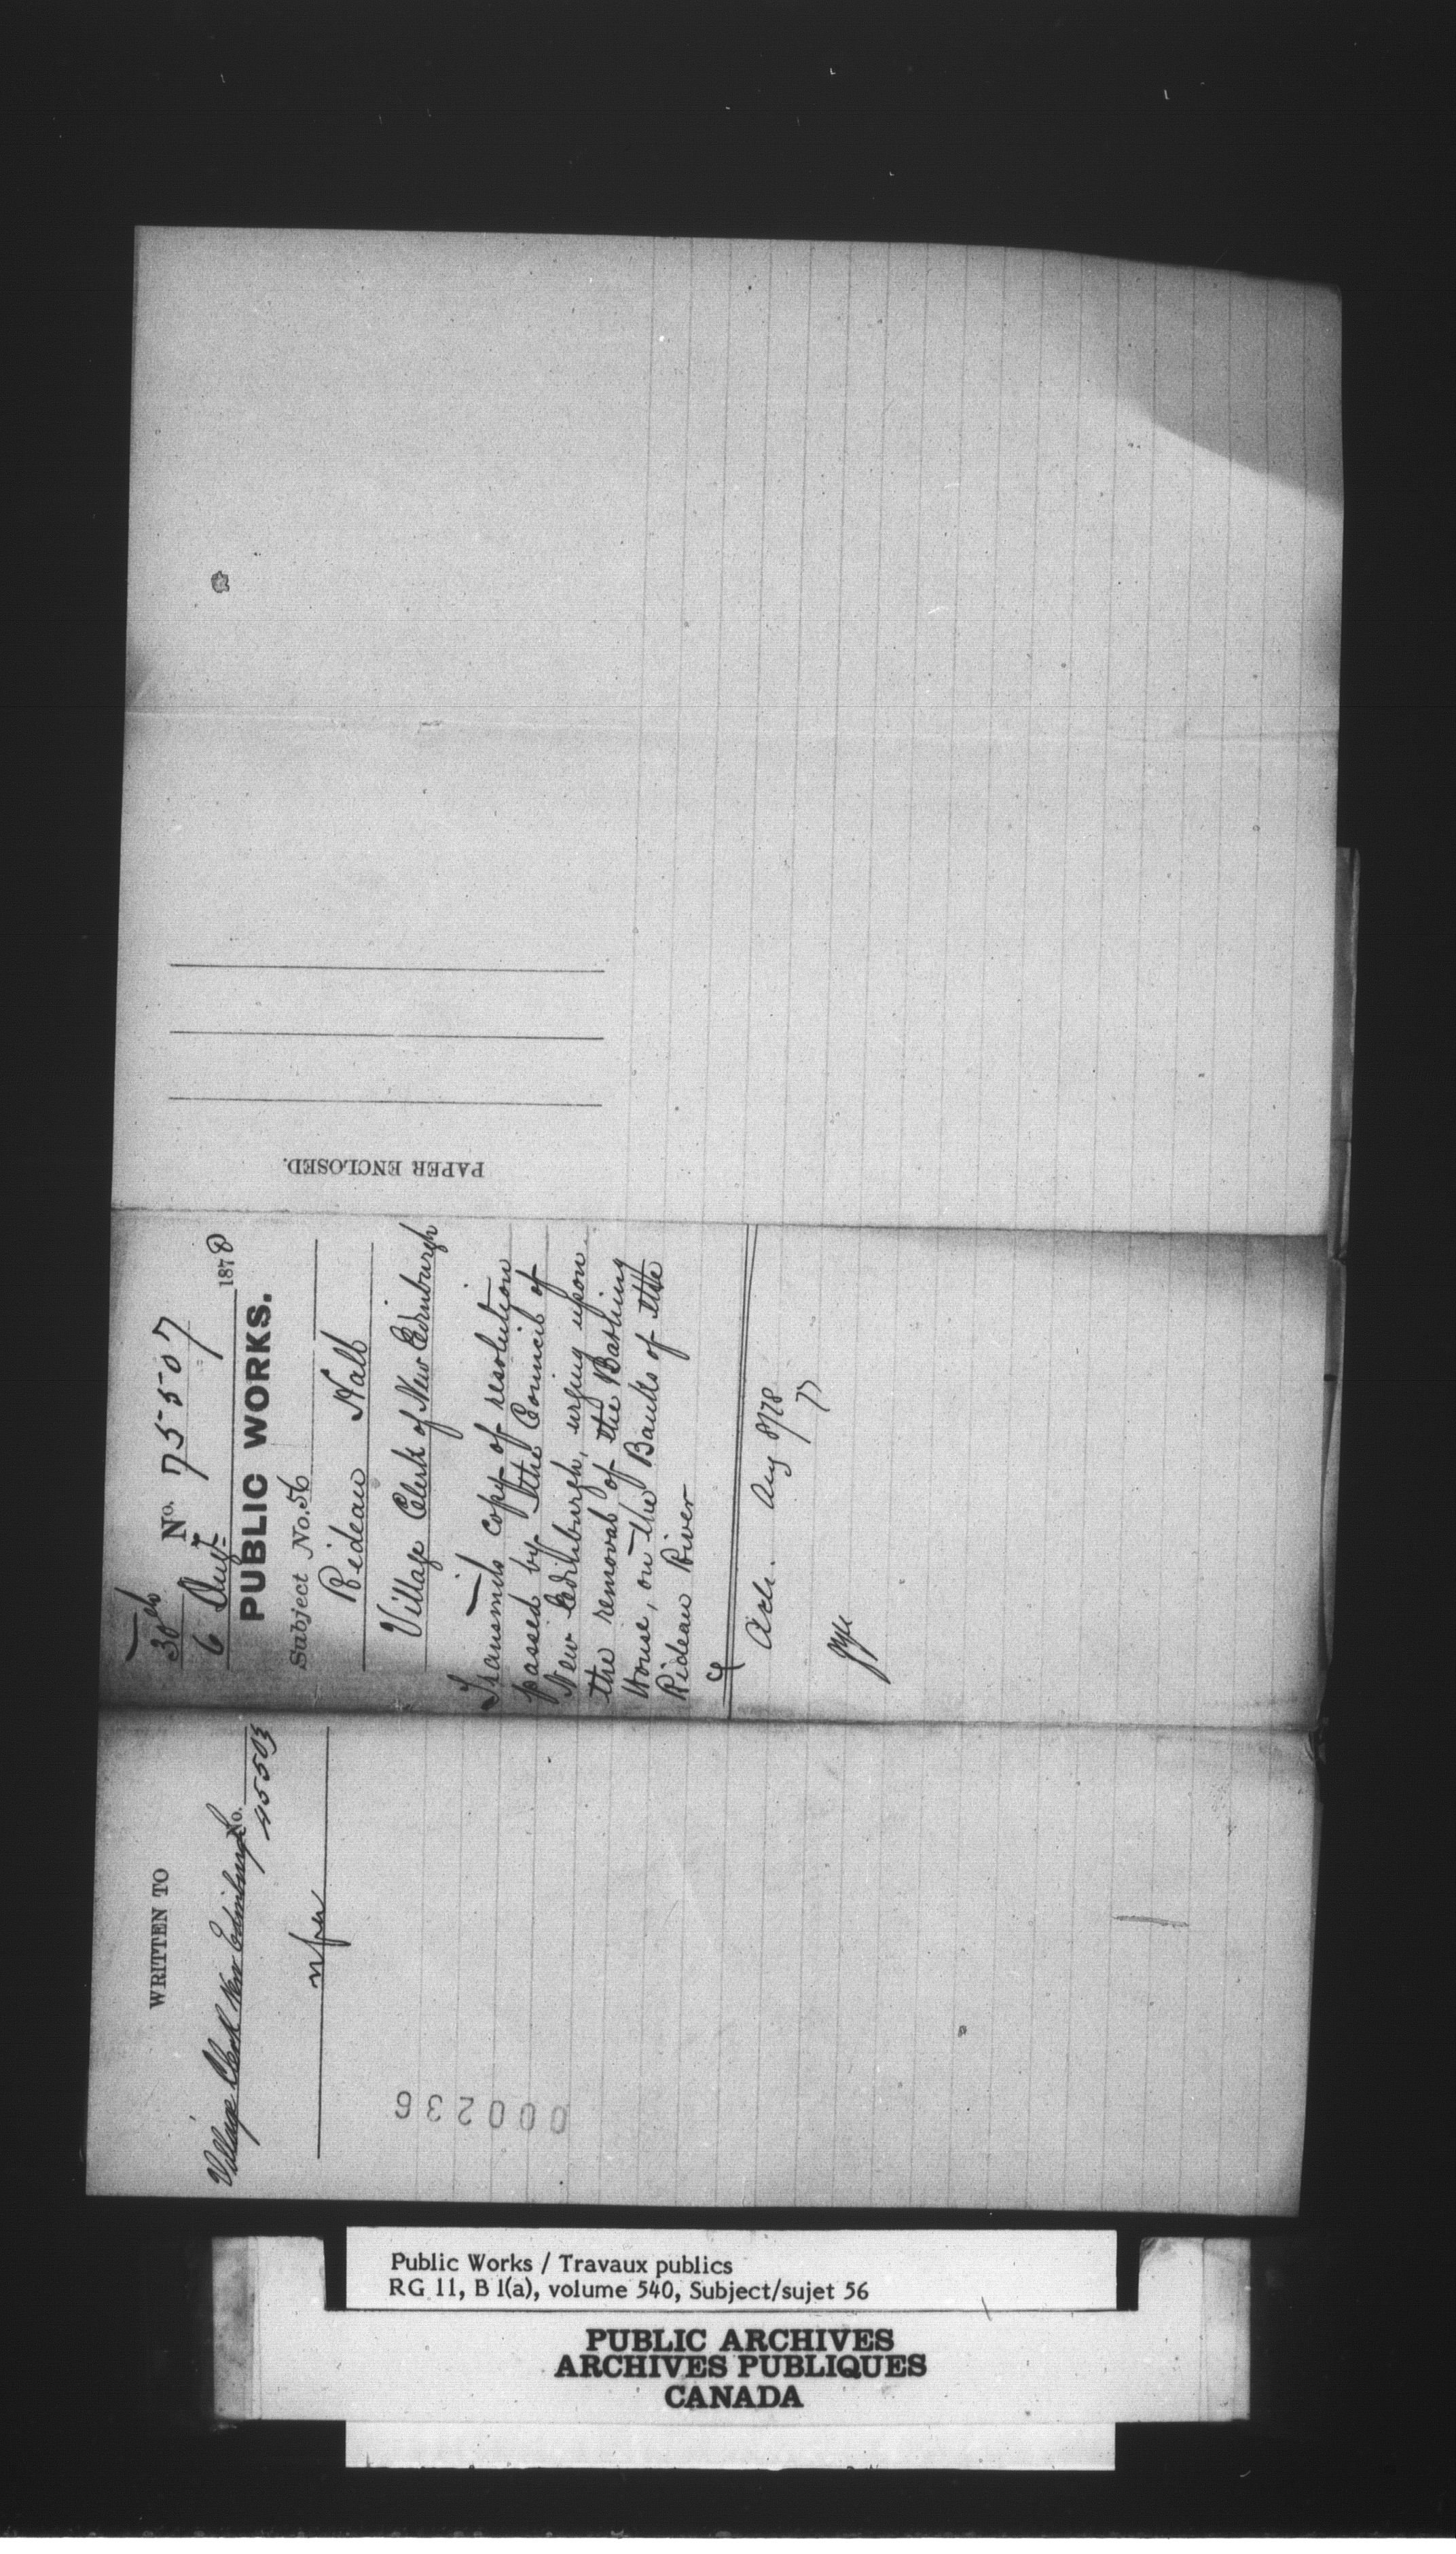 30th
No. 75507
6 Augt 1878
PUBLIC WORKS.
Subject No. 56
Rideau Hall
Village Clerk of New Edinburgh
Transmits copy of resolution
passed by the Council of
New Edinburgh, urging upon
the removal of the Bathing
House, on the Banks of the
Rideau River
Ack. Aug 8/78
PAPER ENCLOSED.
WRITTEN TO
Village Clerk New Edinburgh No.
000236
Public Works / Travaux publics
RG 11, B 1(a), volume 540, Subject/sujet 56
PUBLIC ARCHIVES
ARCHIVES PUBLIQUES
CANADA